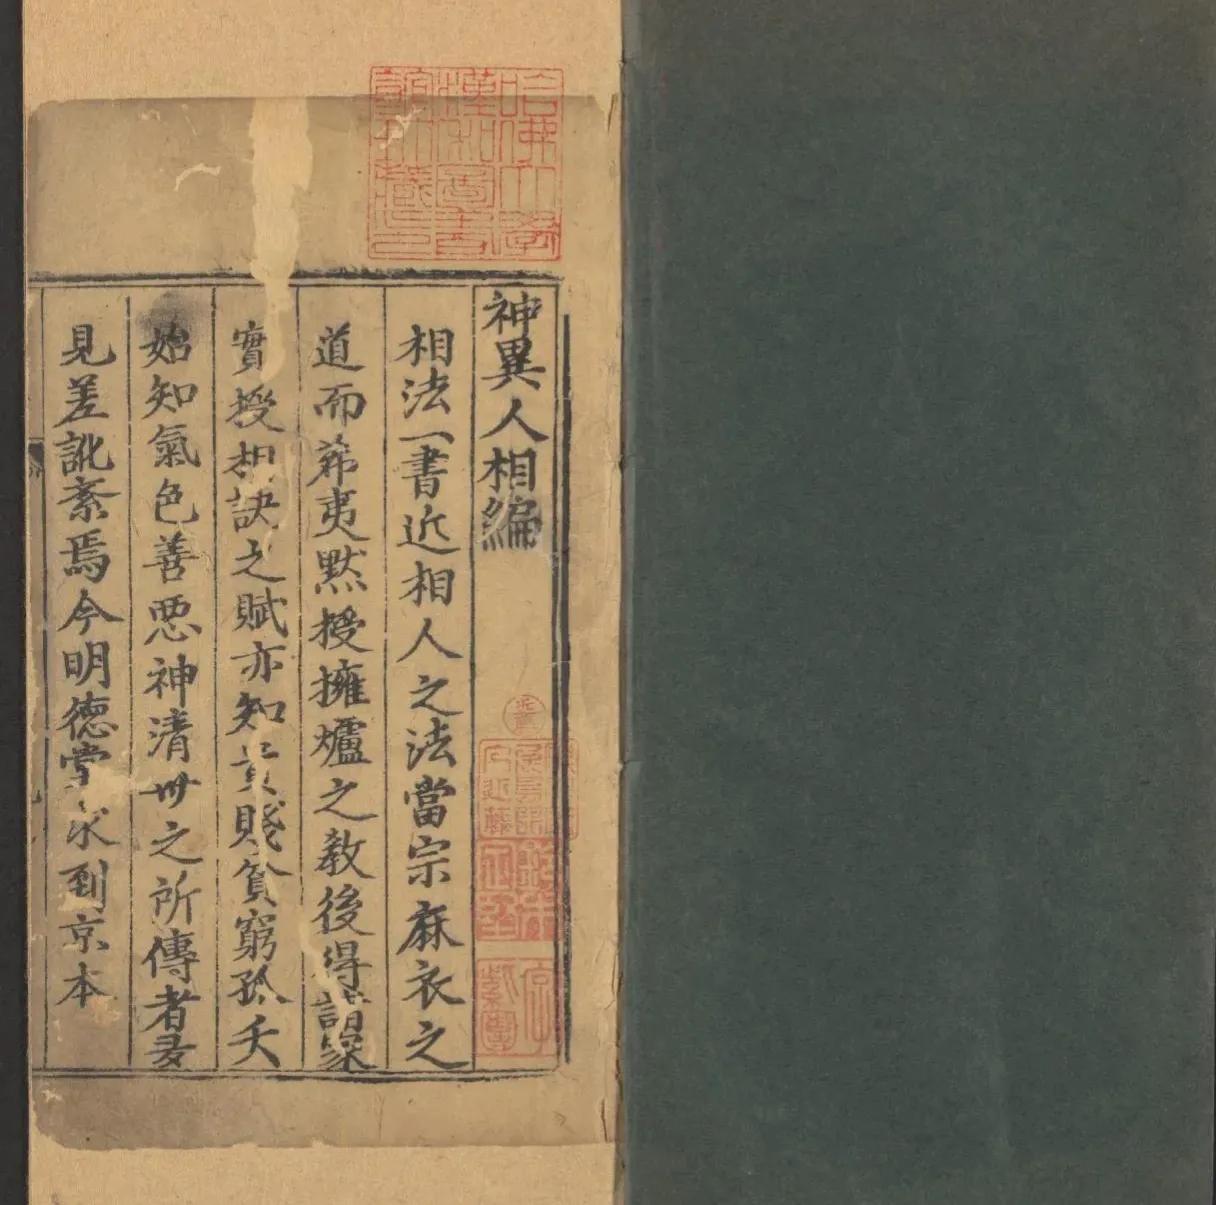 哈佛大學
漢和圖書
館珍藏印
神異人相編
相法一書近相人之法當宗麻衣之
道而希夷默授擁爐之教後得
實授相訣之賦亦知貴賤貧窮孤夭
始知氣色善惡神清世之所傳者
見差訛紊焉今明德堂求到京本